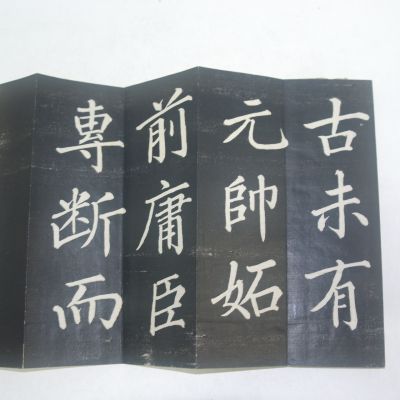 古未有
元帥妬
前庸臣
專断而